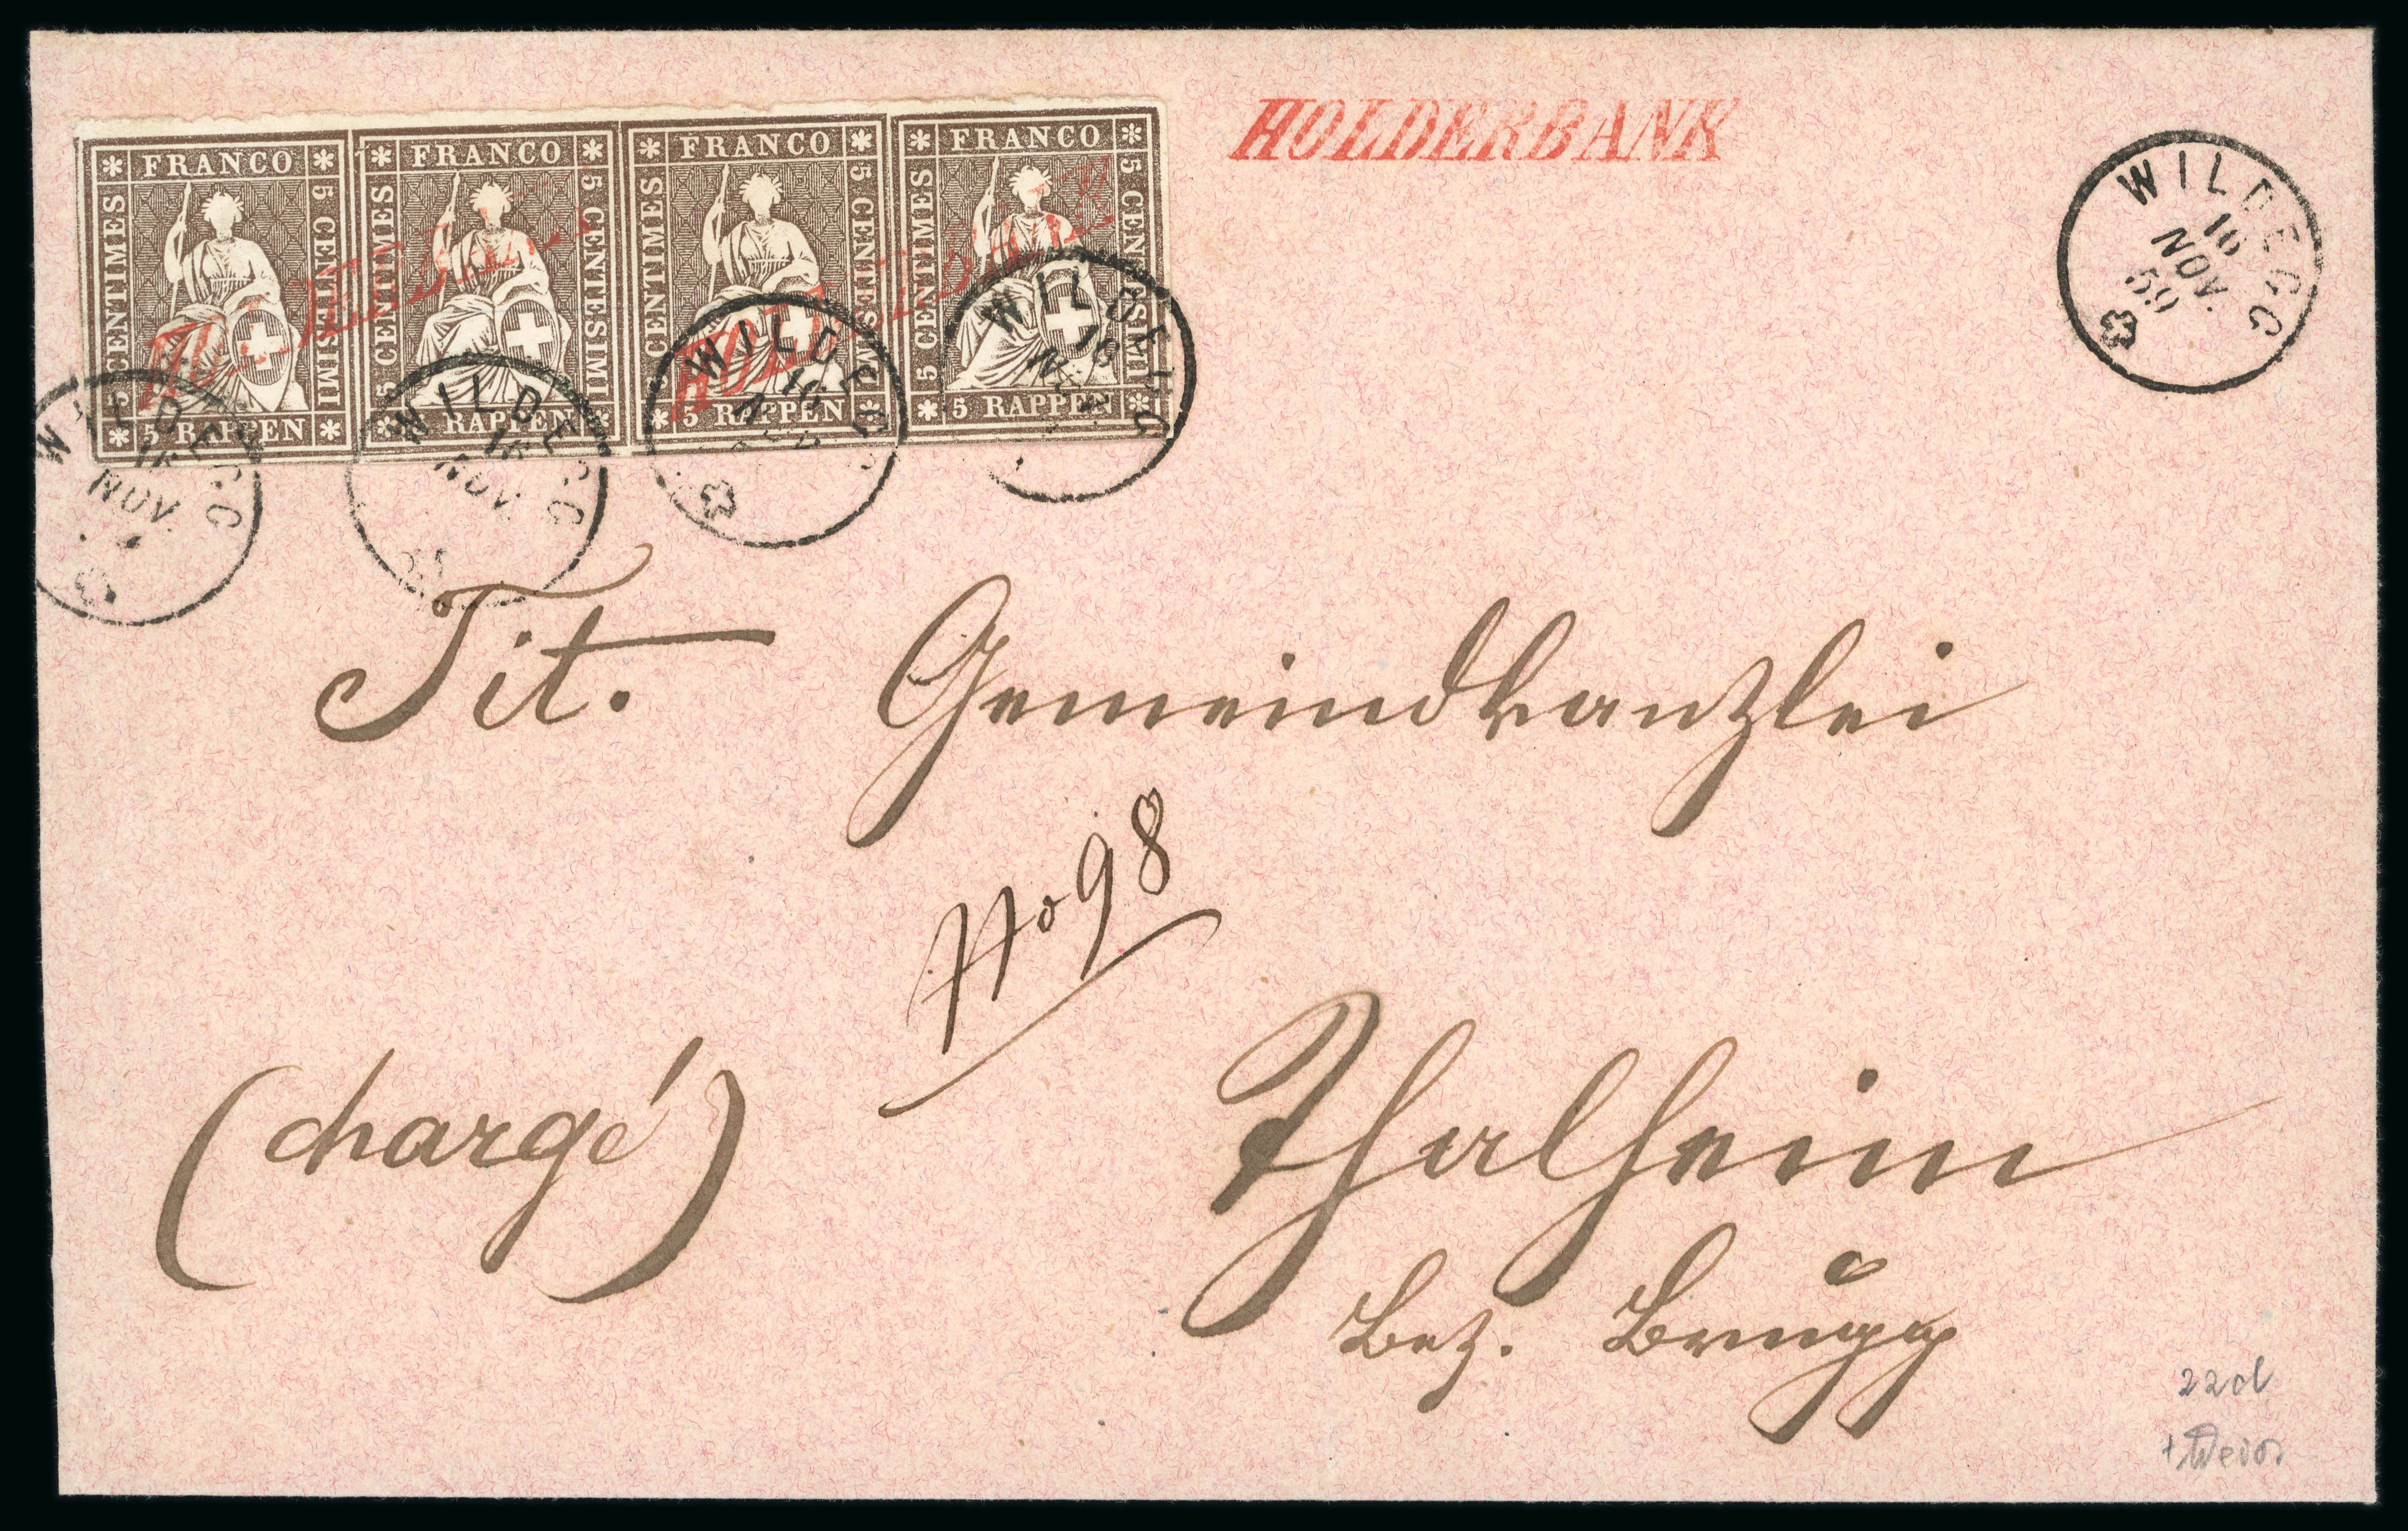 FRANCO
5 CENTIMES
5 CENTESIMI
5 RAPPEN
FRANCO
5 CENTIMES
5 CENTESIMI
5 RAPPEN
FRANCO
5 CENTIMES
5 CENTESIMI
5 RAPPEN
FRANCO
5 CENTIMES
5 CENTESIMI
5 RAPPEN
HOLDERBANK
HOLDERBANK
HOLDERBANK
WILDEGG
16
NOV.
59
WILDEGG
16
NOV.
WILDEGG
16
NOV.
WILDEGG
16
NOV
WILDEGG
16
NOV
Tit. Gemeindkanzlei
No 98
(chargé)
Thalheim
Bez. Brugg
22d